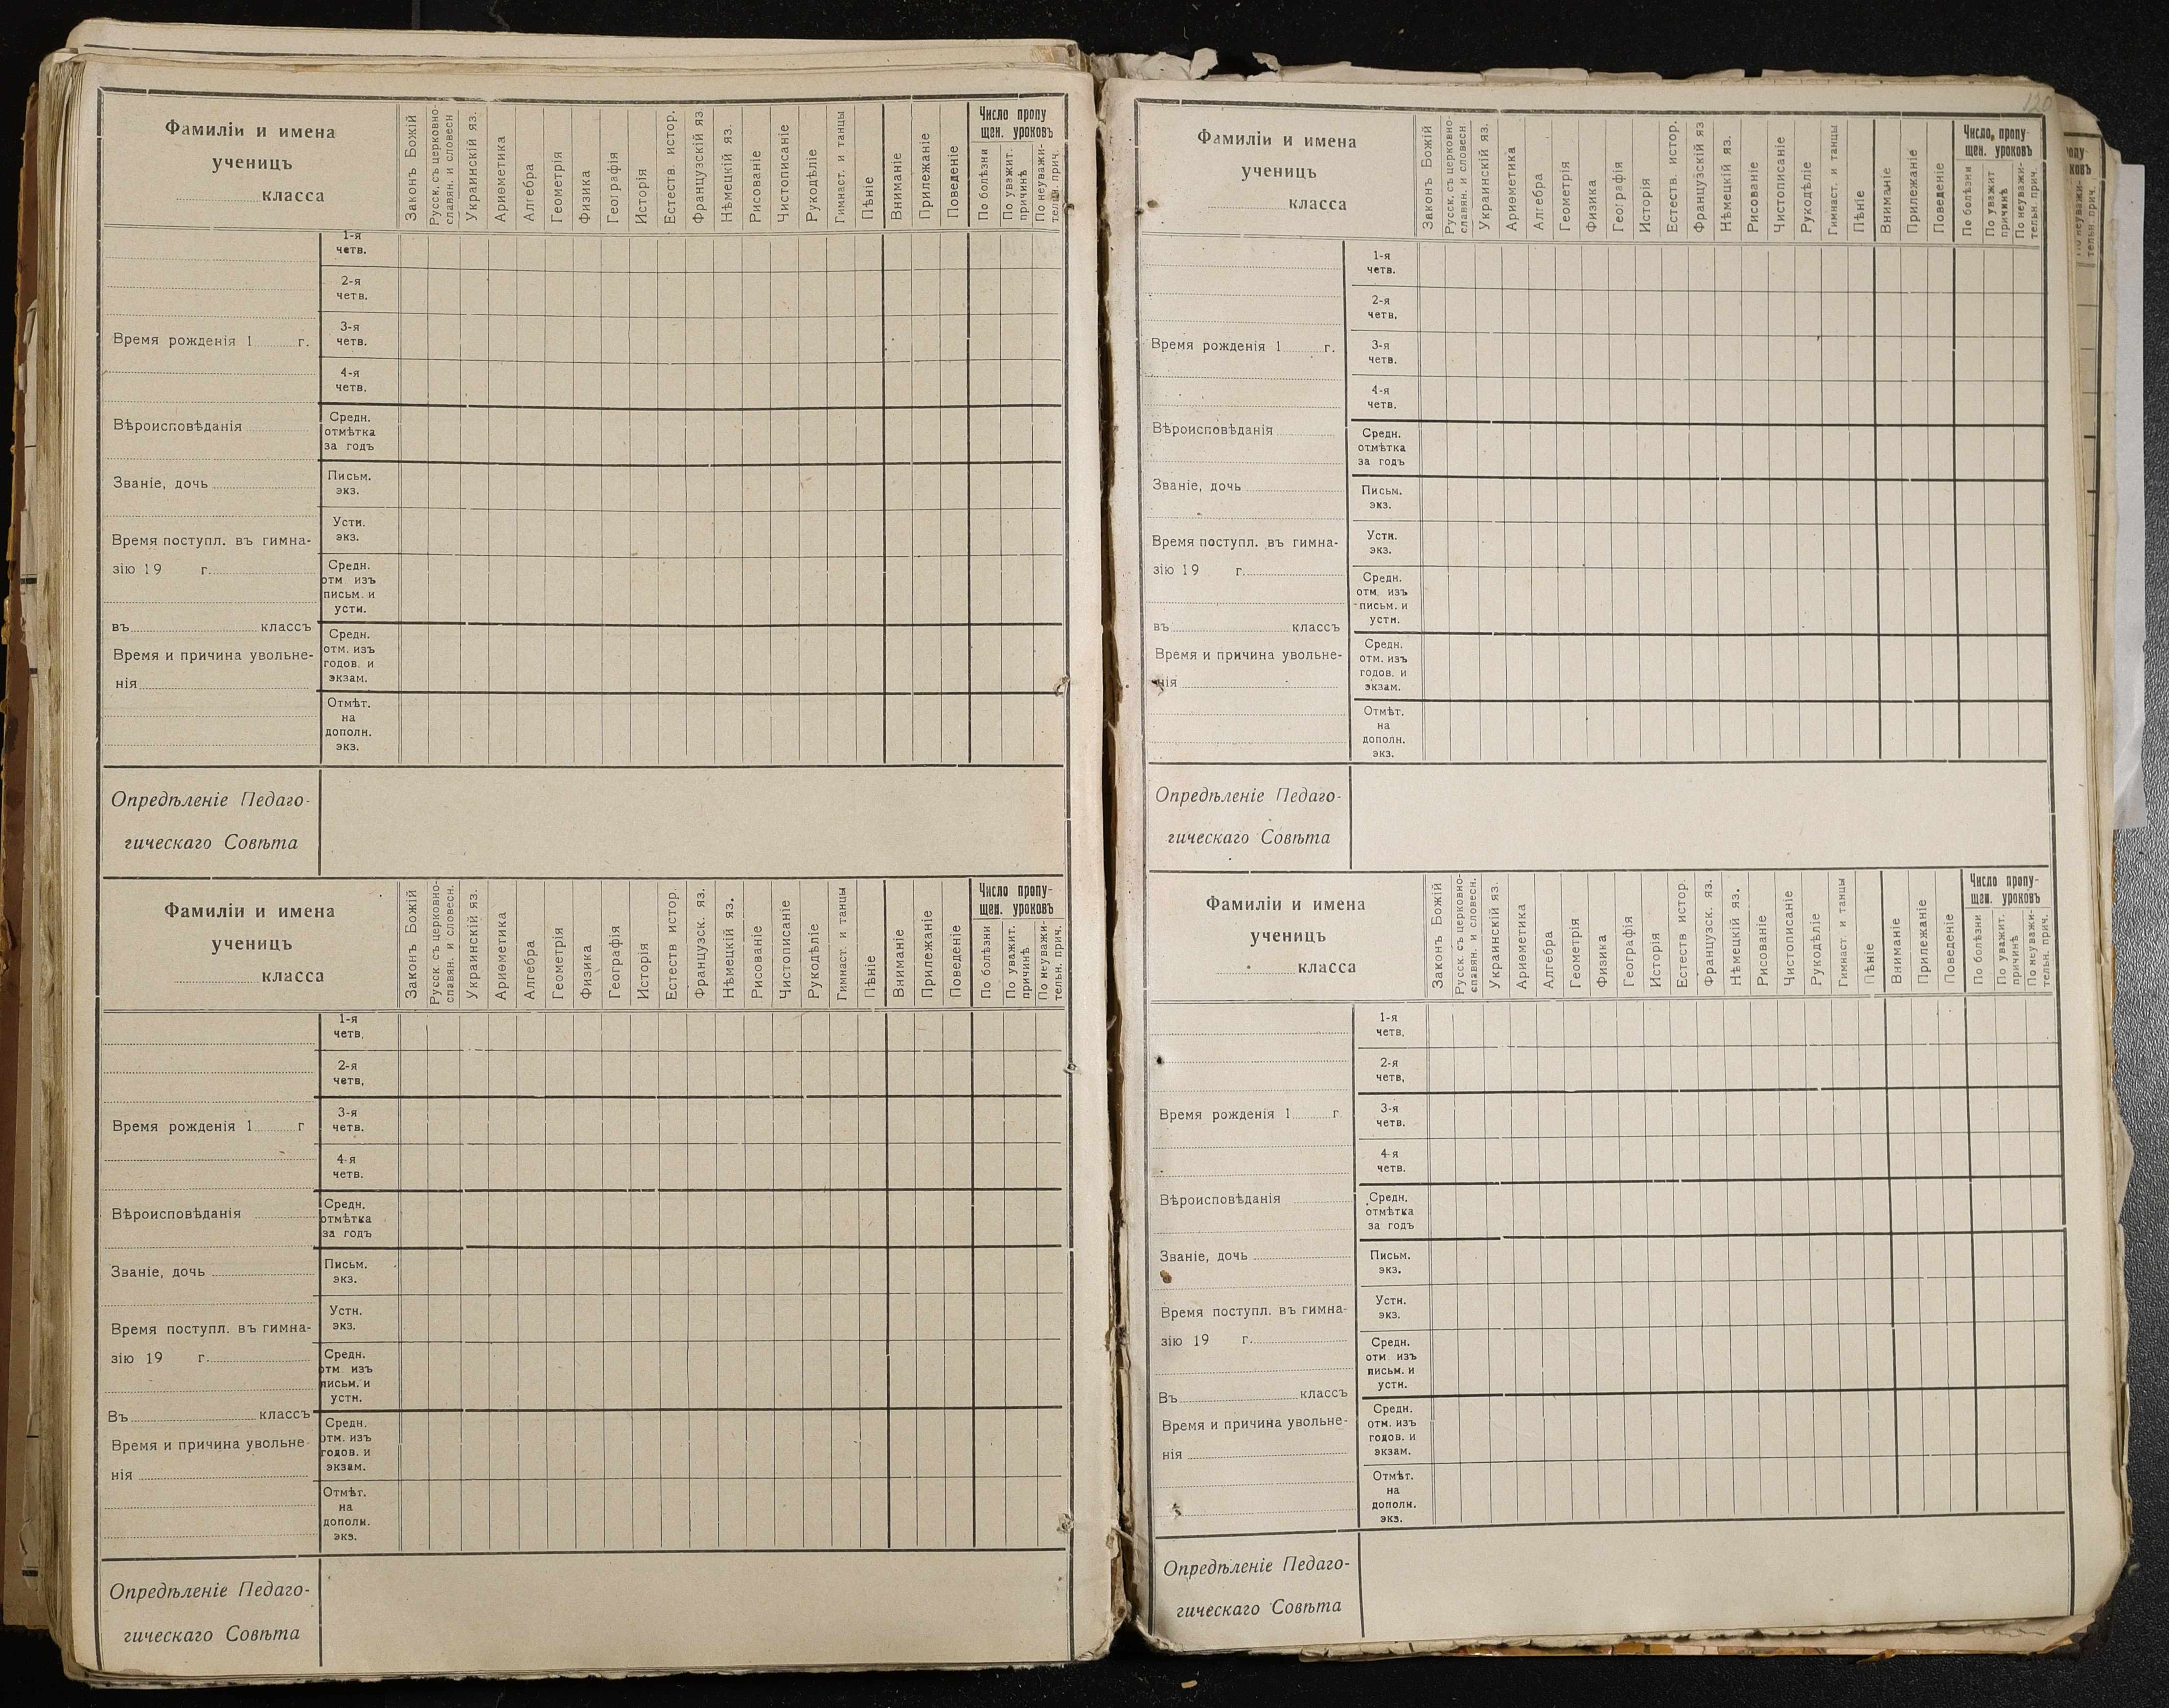 Фамиліи и имена
ученицъ
класса
Законъ Божій
Русск. съ церковно-
славян. и словесн
Украинскій яз.
Ариѳметика
Алгебра
Геометрія
Физика
Географія
Исторія
Естеств. истор.
Французскій яз
Нѣмецкій яз.
Рисованіе
Чистописаніе
Рукодѣліе
Гимнаст. и танцы
Пѣніе
Вниманіе
Прилежаніе
Поведеніе
Число пропу
щен. уроковъ
По болѣзни
По уважит.
причинѣ
По неуважи-
тельн. прич.
1-я
четв.
2-я
четв.
Время рожденія 1 г.
3-я
четв.
4-я
четв.
Вѣроисповѣданія
Средн.
отмѣтка
за годъ
Званіе, дочь
Письм.
экз.
Устн.
экз.
Время поступл. въ гимна-
зію 19 г.
Средн.
отм. изъ
письм. и
устн.
въ классъ
Время и причина увольне-
нія
Средн.
отм. изъ
годов. и
экзам.
Отмѣт.
на
дополн.
экз.
Опредѣленіе Педаго-
гическаго Совѣта
Фамиліи и имена
ученицъ
класса
Законъ Божій
Русск. съ церковно-
славян. и словесн.
Украинскій яз.
Ариѳметика
Алгебра
Геометрія
Физика
Географія
Исторія
Естеств истор.
Французск. яз.
Нѣмецкій яз.
Рисованіе
Чистописаніе
Рукодѣліе
Гимнаст. и танцы
Пѣніе
Вниманіе
Прилежаніе
Поведеніе
Число пропу-
щен. уроковъ
По болѣзни
По уважит.
причинѣ
По неуважи-
тельн. прич.
1-я
четв.
2-я
четв,
Время рожденія 1 г
3-я
четв.
4-я
четв.
Вѣроисповѣданія
Средн.
отмѣтка
за годъ
Званіе, дочь
Письм.
экз.
Устн.
экз.
Время поступл. въ гимна-
зію 19 г.
Средн.
отм изъ
письм. и
устн.
Въ классъ
Время и причина увольне
нія
Средн.
отм. изъ
годов. и
экзам.
Отмѣт.
на
дополн.
экз.
Опредѣленіе Педаго-
гическаго Совѣта
120
Фамиліи и имена
ученицъ
класса
Законъ Божій
Русск. съ церковно-
славян. и словесн.
Украинскій яз.
Ариѳметика
Алгебра
Геометрія
Физика
Географія
Исторія
Естеств. истор.
Французскій яз
Нѣмецкій яз.
Рисованіе
Чистописаніе
Рукодѣліе
Гимнаст. и танцы
Пѣніе
Вниманіе
Прилежаніе
Поведеніе
Число, пропу
щен. уроковъ
По болѣзни
По уважит
причинѣ
По неуважи-
тельн. прич.
1-я
четв.
2-я
четв.
Время рожденія 1 г.
3-я
четв.
4-я
четв.
Вѣроисповѣданія
Средн.
отмѣтка
за годъ
Званіе, дочь
Письм.
экз.
Устн.
экз.
Время поступл. въ гимна-
зію 19 г.
Средн.
отм. изъ
письм. и
устн.
въ классъ
Время и причина увольне-
нія
Средн.
отм. изъ
годов. и
экзам.
Отмѣт.
на
дополн.
экз.
Опредѣленіе Педаго-
гическаго Совѣта
Фамиліи и имена
ученицъ
класса
Законъ Божій
Русск. съ церковно-
славян. и словесн.
Украинскій яз.
Ариѳметика
Алгебра
Геометрія
Физика
Географія
Исторія
Естеств истор.
Французск. яз.
Нѣмецкій яз.
Рисованіе
Чистописаніе
Рукодѣліе
Гимнаст. и танцы
Пѣніе
Вниманіе
Прилежаніе
Поведеніе
Число пропу-
щен. уроковъ
По болѣзни
По уважит.
причинѣ
По неуважи-
тельн. прич.
1-я
четв.
2-я
четв,
Время рожденія 1 г
3-я
четв.
4-я
четв.
Вѣроисповѣданія
Средн.
отмѣтка
за годъ
Званіе, дочь
Письм.
экз.
Устн.
экз.
Время поступл. въ гимна-
зію 19 г.
Средн.
отм изъ
письм. и
устн.
Въ классъ
Время и причина увольне-
нія
Средн.
отм. изъ
годов. и
экзам.
Отмѣт.
на
дополн.
экз.
Опредѣленіе Педаго-
гическаго Совѣта